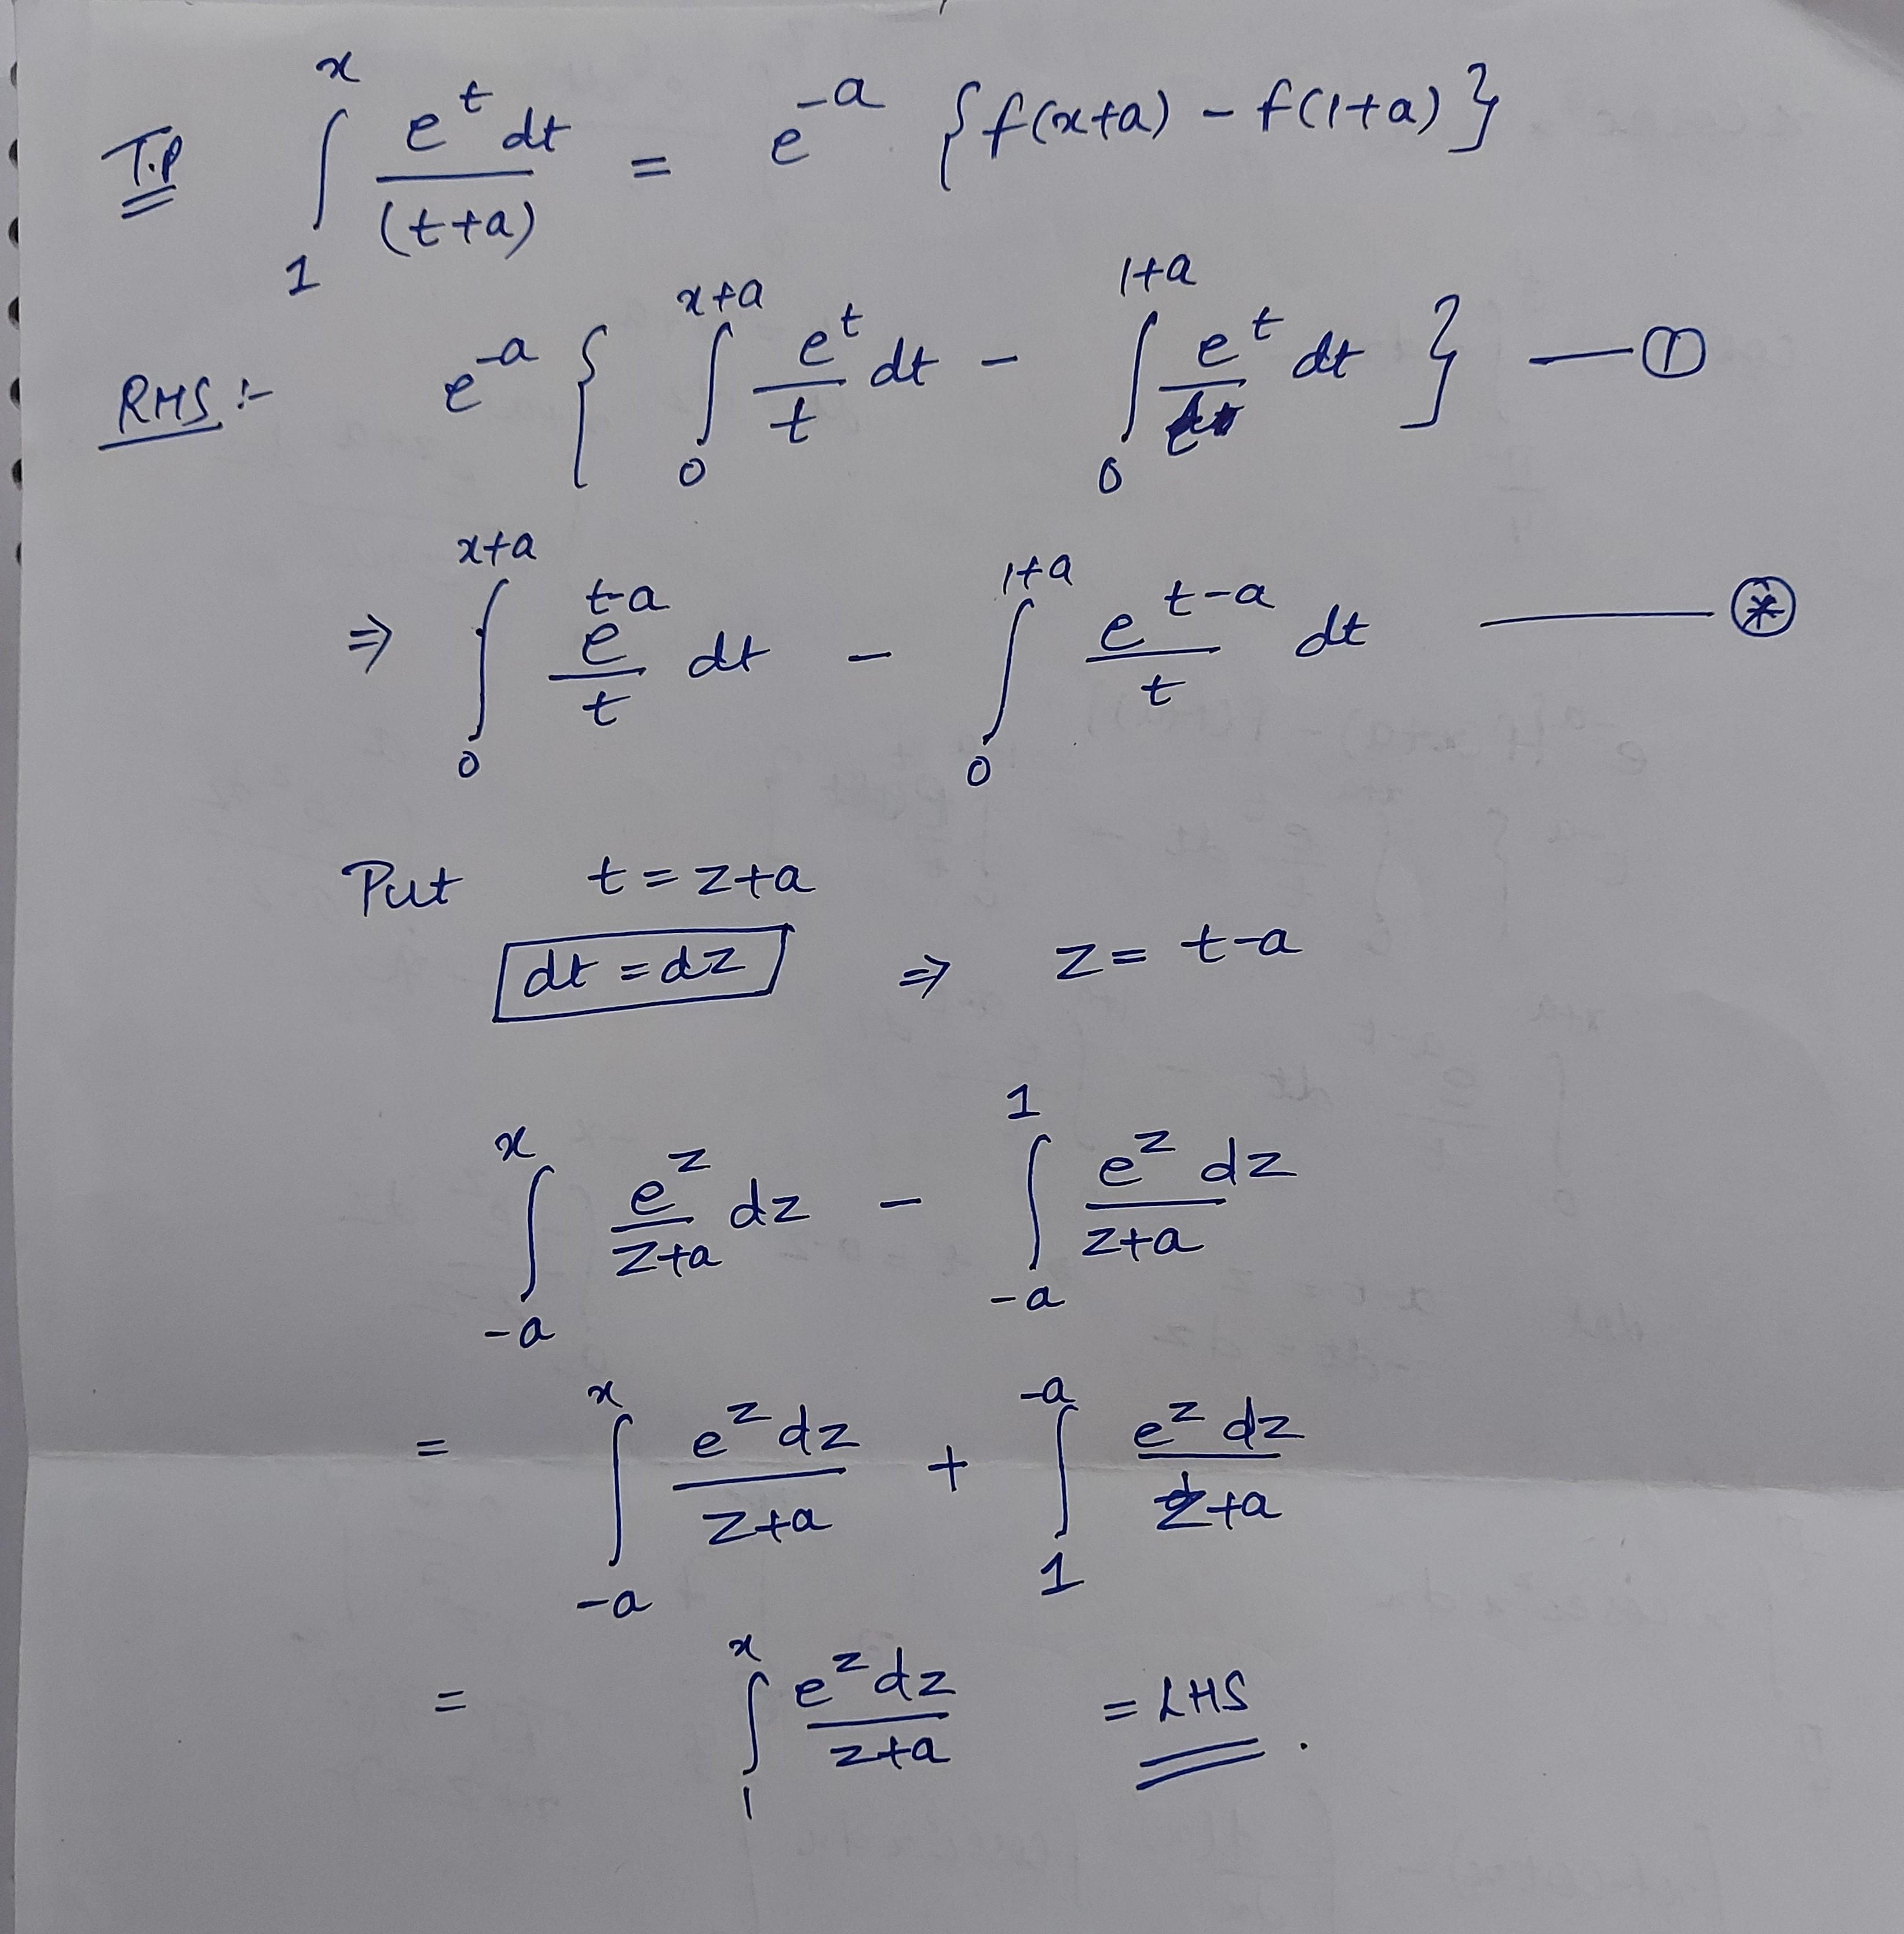 T.P ∫₁ˣ e^t dt / (t+a) = e^-a {f(x+a) - f(1+a)}
RHS :- e^-a { ∫₀^(x+a) e^t/t dt - ∫₀^(1+a) e^t/t dt } — ①
⇒ ∫₀^(x+a) e^(t-a)/t dt - ∫₀^(1+a) e^(t-a)/t dt — ⊛
Put t = z+a
dt = dz ⇒ z = t-a
∫₋ₐ^x e^z/(z+a) dz - ∫₋ₐ^1 e^z dz/(z+a)
= ∫₋ₐ^x e^z dz/(z+a) + ∫₁^(-a) e^z dz/(z+a)
= ∫₁^x e^z dz/(z+a) = LHS.